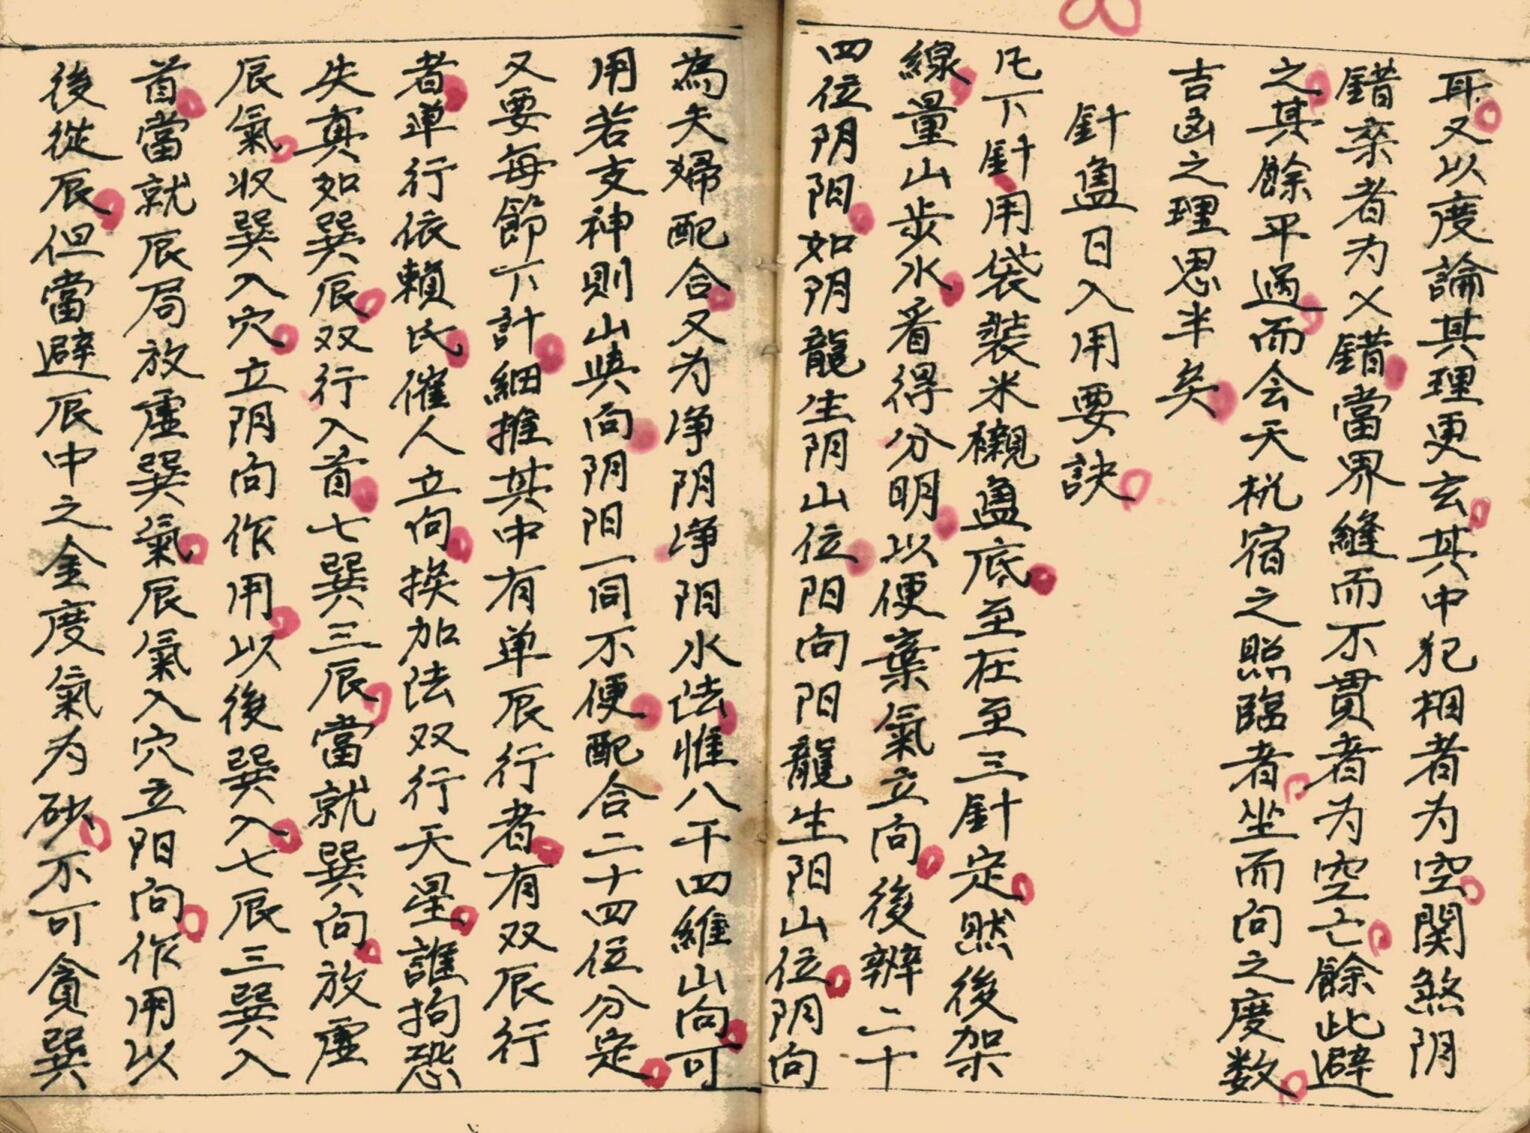 耳又以度論其理更玄其中犯相者为空関煞阴
錯栾者为乂錯當界縫而不貫者为空亡餘此避
之其餘平過而会天杭宿之照臨者坐而向之度数
吉凶之理思半矣
針盤日入用要訣
凡下針用袋装米襯盤底至在至三針定然後架
線量山步水看得分明以便棄氣立向後辨二十
四位阴阳如阴龍生阴山位阳向阳龍生阳山位阴向
為夫婦配合又为净阴净阳水法惟八干四維山向可
用若支神則山與向阴阳一同不便配合二十四位分定
又要每節下計細推其中有单辰行者有双辰行
者单行依賴氏催人立向挨加法双行天星誰拘恐
失真如巽辰双行入首七巽三辰當就巽向放虛
辰氣收巽入穴立阴向作用以後巽入七辰三巽入
首當就辰局放虛巽氣辰氣入穴立阳向作用以
後從辰但當避辰中之金度氣为砂不可貪巽